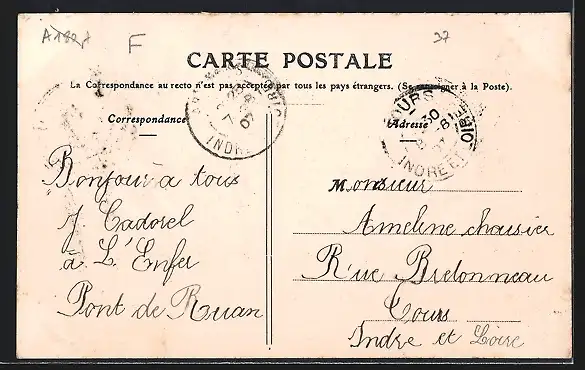 A1827
F
37
CARTE POSTALE
La Correspondance au recto n'est pas acceptée par tous les pays étrangers. (Se renseigner à la Poste).
Correspondance
Adresse
INDRE
TOURS
INDRE ET
Bonjour à tous
J Cadorel
à L'Enfer
Pont de Ruan
Monsieur
Ameline chaisier
Rue Bretonneau
Tours
Indre et Loire